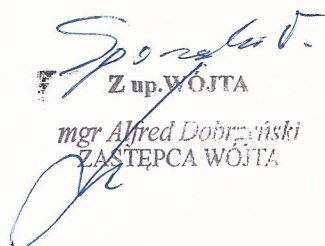 Z up. WÓJTA
mgr Alfred Dobrzyński
ZASTĘPCA WÓJTA